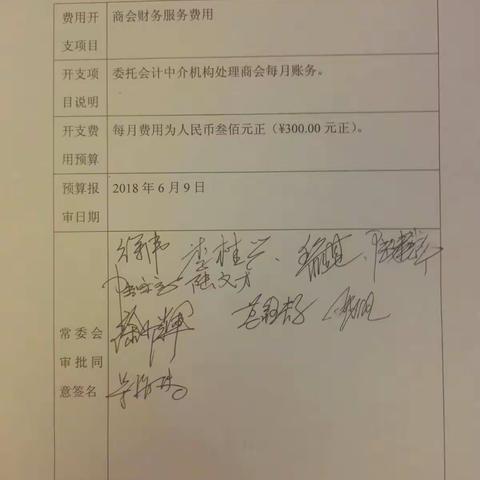 费用开
支项目
商会财务服务费用
开支项
目说明
委托会计中介机构处理商会每月账务。
开支费
用预算
每月费用为人民币叁佰元正（¥300.00 元正）。
预算报
审日期
2018 年 6 月 9 日
常委会
审批同
意签名
李桂兴
陆文才